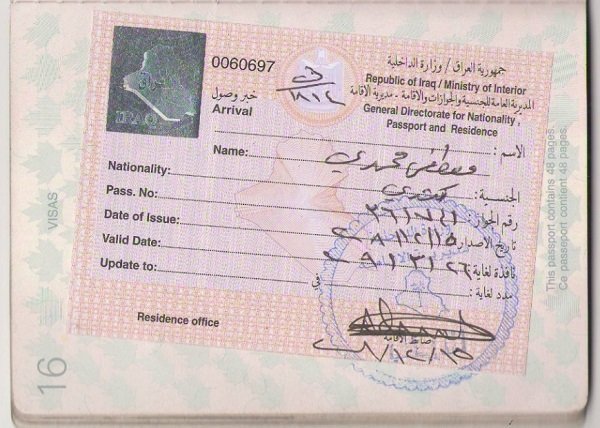 العراق
IRAQ
0060697
خبر وصول
Arrival
جمهورية العراق / وزارة الداخلية
Republic of Iraq / Ministry of Interior
المديرية العامة للجنسية والجوازات والاقامة - مديرية الأقامة
General Directorate for Nationality,
Passport and Residence
Name: مصطفى محمدي الاسم :
Nationality: كندي الجنسية :
Pass. No: رقم الجواز :
Date of Issue: ٢٠٠٨/١٢/١٥ تاريخ الاصدار :
Valid Date: نافذة لغاية :
Update to: في مدد لغاية :
Residence office
ضابط الأقامة
٢٠٠٨/١٢/١٥
VISAS
16
This passport contains 48 pages.
Ce passeport contient 48 pages.